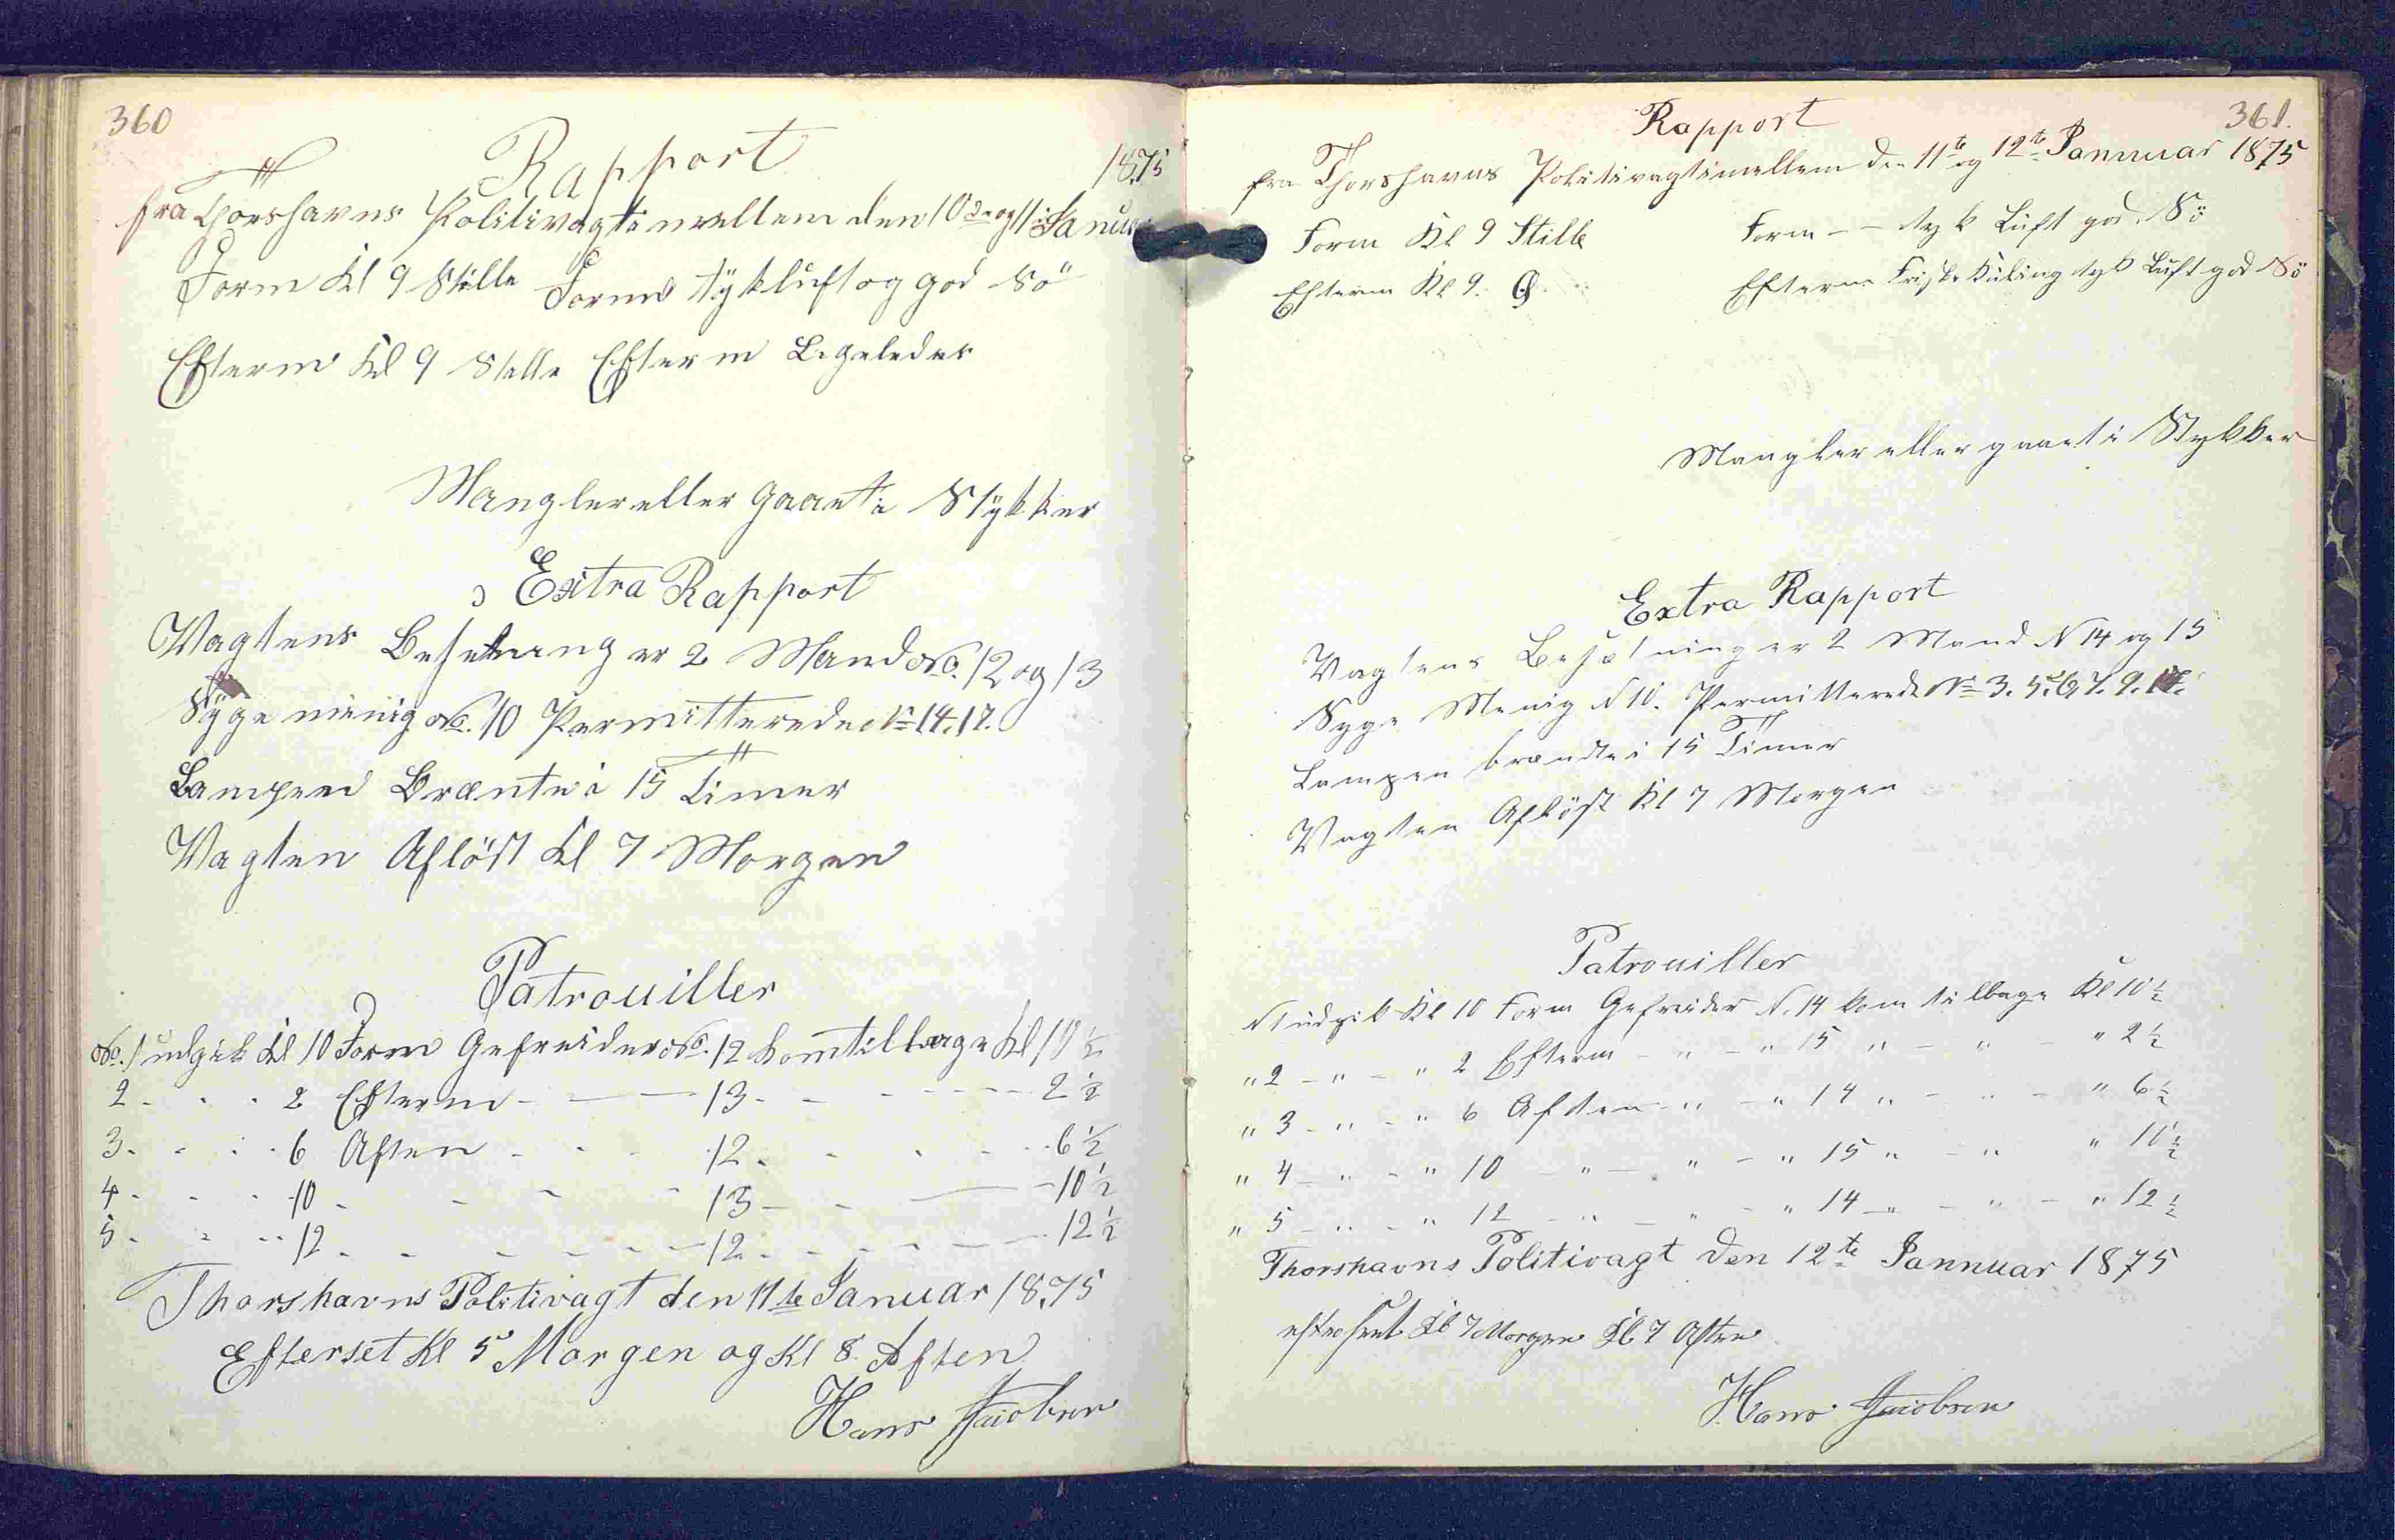 360
Rapport
1875
fra Thorshavns Politivagt imellem den 10de og 11te Januar
Form Kl 9 Stille Form tÿk luft og god Sö
Efterm Kl 9 Stelle Efterm Ligeledes
Mangler eller gaaet i Stÿkker
Extra Rapport
Vagtens Besetning er 2 Mand No. 12 og 13
Sÿge menig No. 10 Permitterede No 14. 17.
Lampen Brænte i 15 Timer
Vagten Aflöst Kl 7 Morgen
Patrouiller
No. 1 udgik Kl 10 Form Gefreider No. 12 kom tillbage Kl 10 ½
2 - - - 2 Efterm - - - 13 - - - - 2 ½
3 - - - 6 Aften - - - 12 - - - - 6 ½
4 - - - 10 - - - - 13 - - - 10 ½
5 - - - 12 - - - - 12 - - - - 12 ½
Thorshavns Politivagt den 11te Januar 1875
Efterset Kl 5 Morgen og Kl 8 Aften
Hans Jacobsen
361.
Rapport
fra Thorshavns Politivagt imellem den 11te og 12te Jannuar 1875
Form Kl 9 Stille Form - - tyk Luft god Sö
Efterm Kl 9. Ø. Efterm Friske Kuling tyk Luft god Sö
Mangler eller gaaet i Stykker
Extra Rapport
Vagtens Besætning er 2 Mand N 14 og 15
Syge Menig N 10. Permitterede No 3. 5. 6, 7. 9.
Lampen brændte i 15 Timer
Vagten Aflöst Kl 7 Morgen
Patrouiller
N 1 udgik Kl 10 Form Gefreider N. 14 kom tilbage Kl 10 ½
" 2 - " - " 2 Efterm - " - " 15 " - " - " 2 ½
" 3 - " - " 6 Aften - " - " 14 " - " - " 6 ½
" 4 - " - " 10 - " - " - " 15 " - " " 10 ½
" 5 - " - " 12 - " - " - " 14 - " - " - " 12 ½
Thorshavns Politivagt den 12te Jannuar 1875
efterseet Kl 7 Morgen Kl 7 Aften
Hans Jacobsen